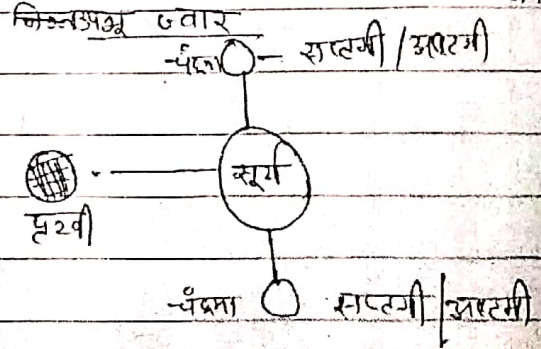 निम्न ज्वार
चंद्रमा - सप्तमी / अष्टमी
सूर्य
पृथ्वी
चंद्रमा सप्तमी / अष्टमी